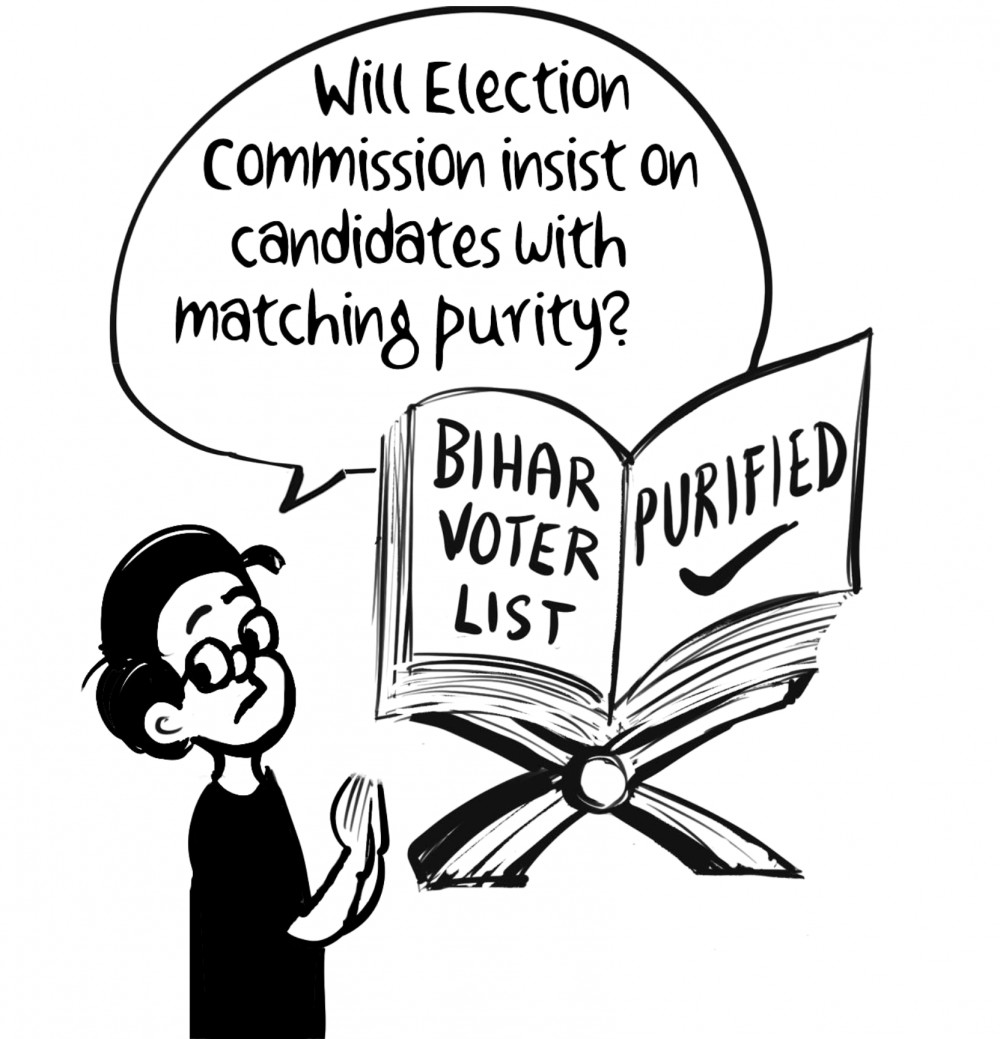 Will Election
Commission insist on
candidates with
matching purity?
BIHAR
VOTER
LIST
PURIFIED